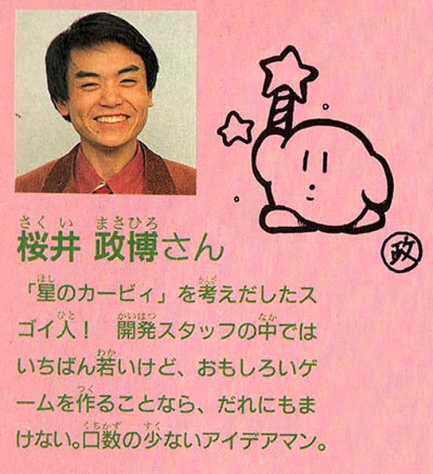 さくい まさひろ
桜井 政博さん
政
ほし かんが
「星のカービィ」を考えだしたス
ひと かいはつ なか
ゴイ人! 開発スタッフの中では
わか
いちばん若いけど、おもしろいゲ
つく
ームを作ることなら、だれにもま
くちかず すく
けない。口数の少ないアイデアマン。